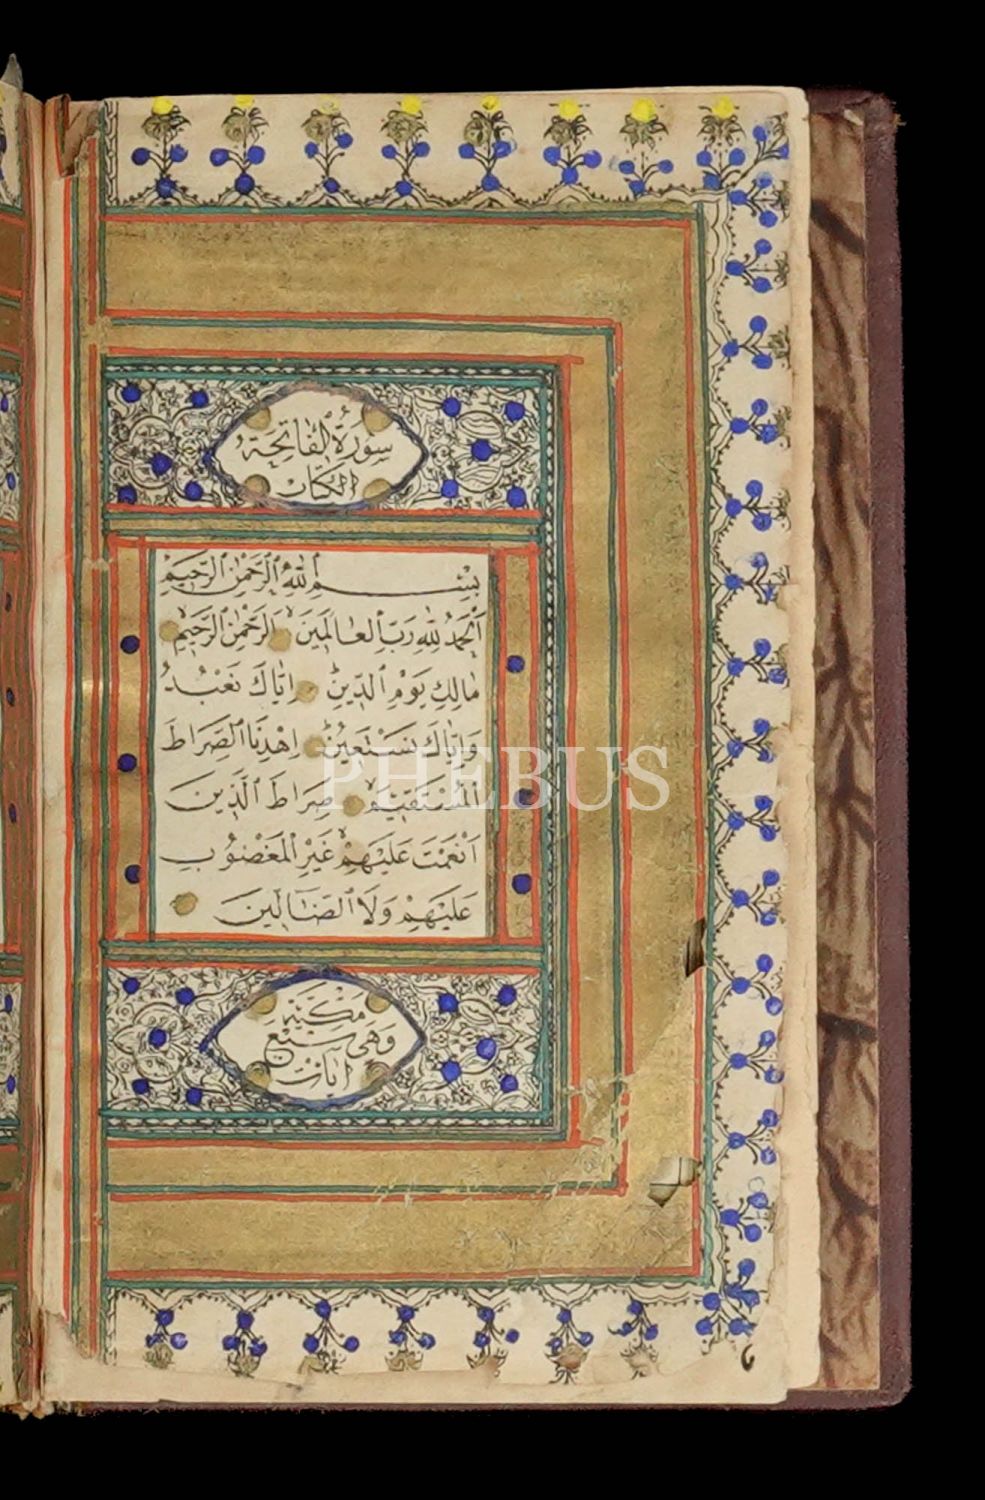 سورة الفاتحة
الكتاب
بِسْمِ اللّٰهِ الرَّحْمٰنِ الرَّحِيمِ
اَلْحَمْدُ لِلّٰهِ رَبِّ الْعَالَمِينَ الرَّحْمٰنِ الرَّحِيمِ
مَالِكِ يَوْمِ الدِّينِ اِيَّاكَ نَعْبُدُ
وَاِيَّاكَ نَسْتَعِينُ اِهْدِنَا الصِّرَاطَ
الْمُسْتَقِيمَ صِرَاطَ الَّذِينَ
اَنْعَمْتَ عَلَيْهِمْ غَيْرِ الْمَغْضُوبِ
عَلَيْهِمْ وَلَا الضَّالِّينَ
مكية
وهي سبع
ايات
PHEBUS